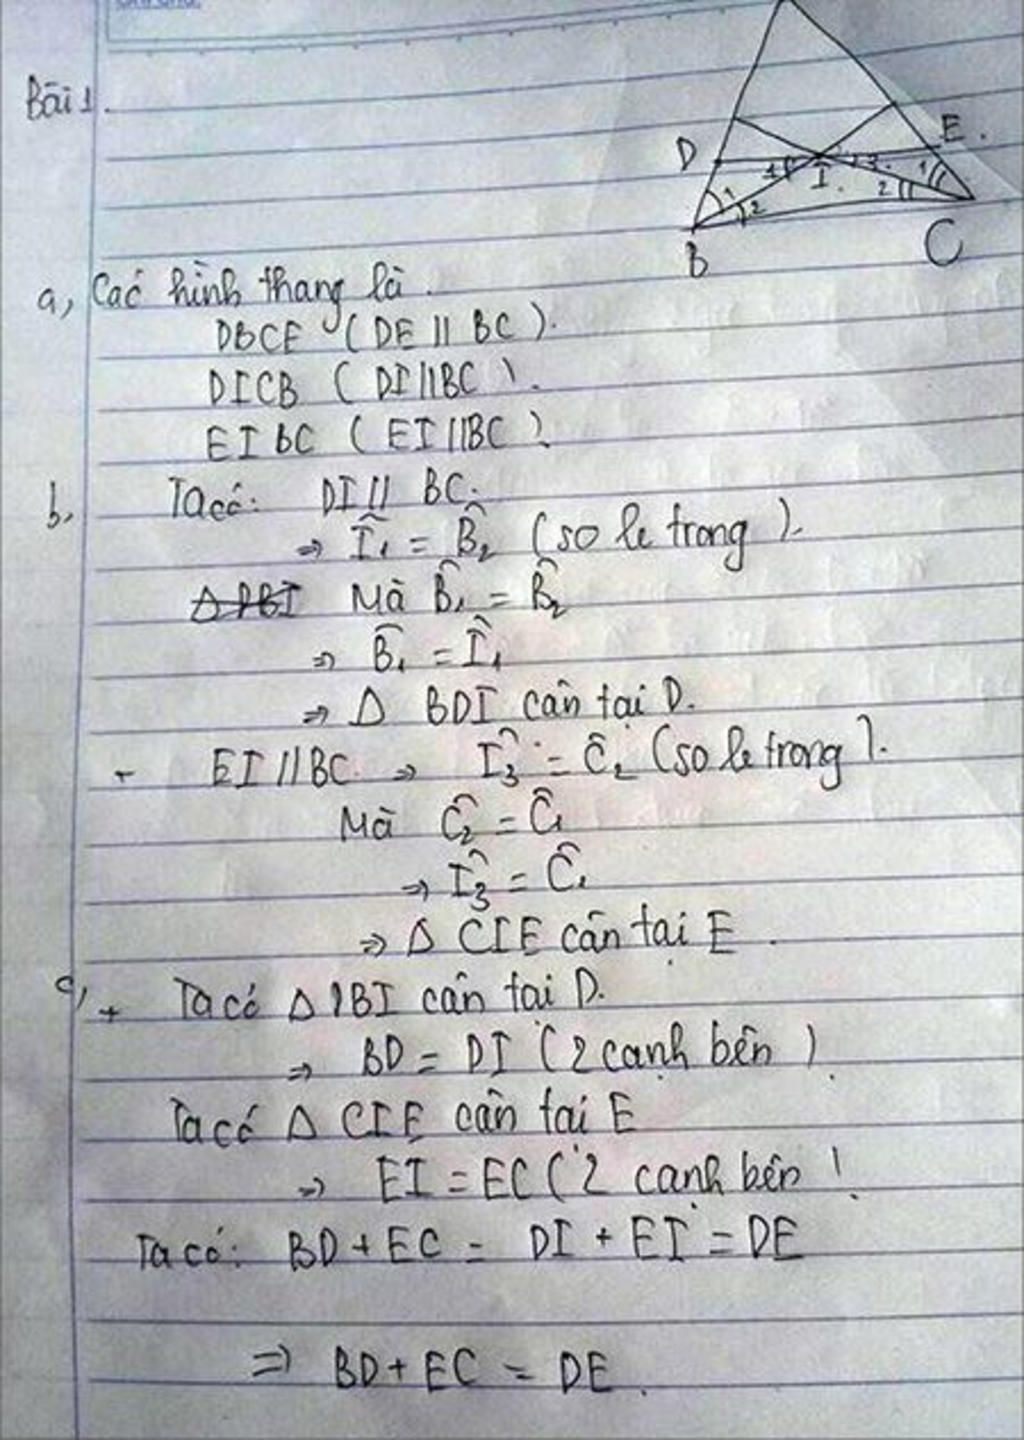 Bài 1.
D
E.
1
I.
3
2
1
1
2
B
C
a, Các hình thang là.
DBCE (DE // BC).
DICB (DI//BC).
EIBC (EI//BC).
b, Ta có: DI // BC.
⇒ Î₁ = B̂₂ (so le trong).
Mà B̂₁ = B̂₂
⇒ B̂₁ = Î₁
⇒ Δ BDI cân tại D.
+ EI//BC ⇒ Î₃ = Ĉ₂ (so le trong).
Mà Ĉ₂ = Ĉ₁
⇒ Î₃ = Ĉ₁
⇒ Δ CIE cân tại E.
c, + Ta có Δ DBI cân tại D.
⇒ BD = DI (2 cạnh bên)
Ta có Δ CIE cân tại E
⇒ EI = EC (2 cạnh bên)
Ta có: BD + EC = DI + EI = DE
⇒ BD + EC = DE.